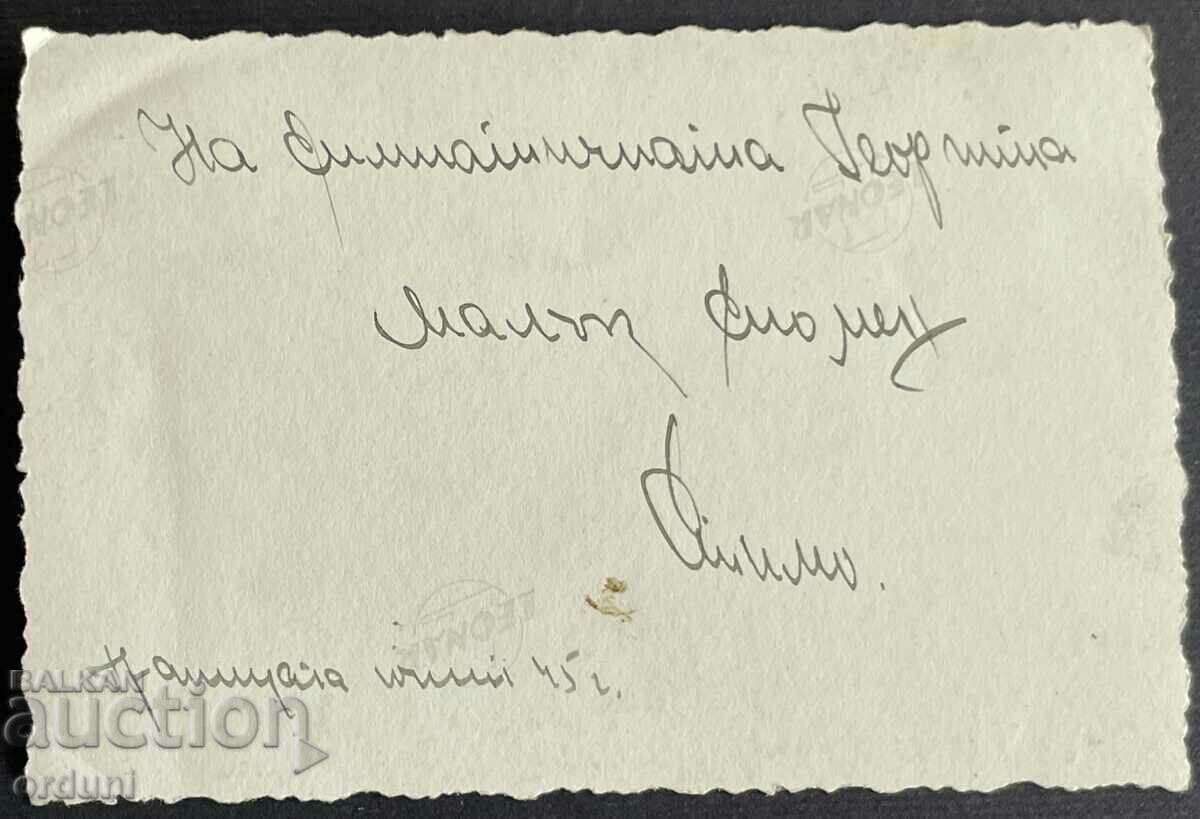 На симпатичната Георгина
Малък спомен
Стимо.
юний 45 г.
LEONAR
LEONAR
LEONAR
BALKAN
auction
orduni